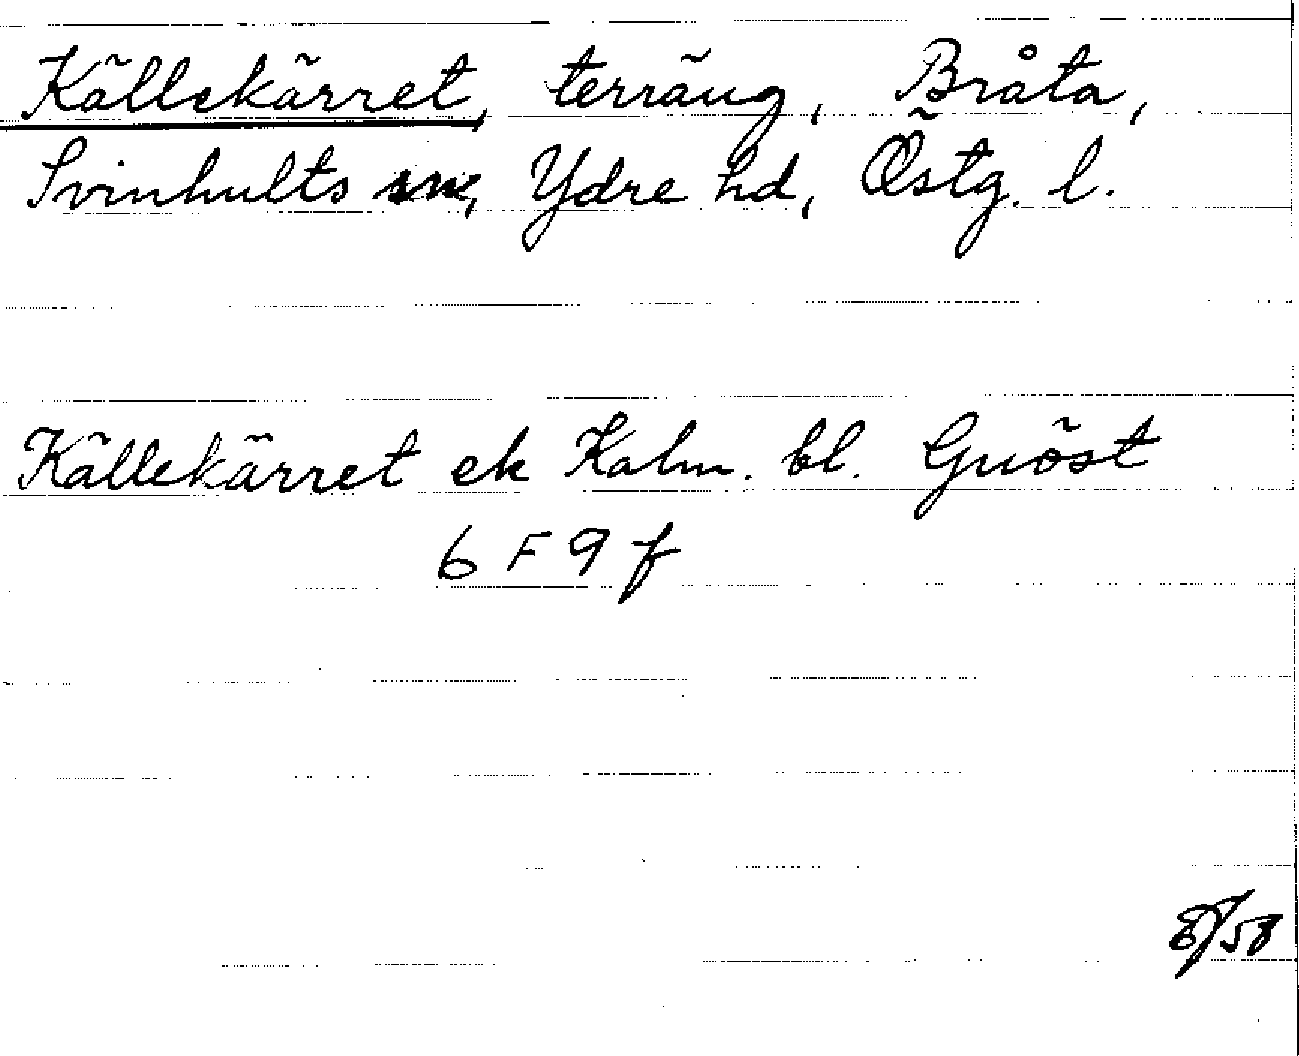 Källekärret, terräng, Bråta,
Svinhults sn, Ydre hd, Östg. l.
Källekärret ek Kalm. bl. Gnöst
6 F 9 f
/58